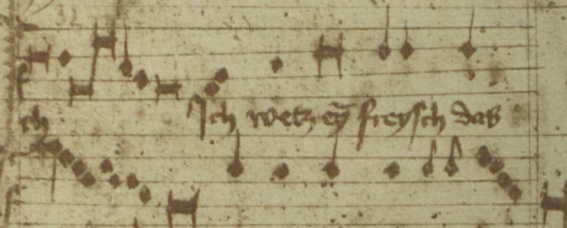 Ich wetzeÿ freysch das
ch